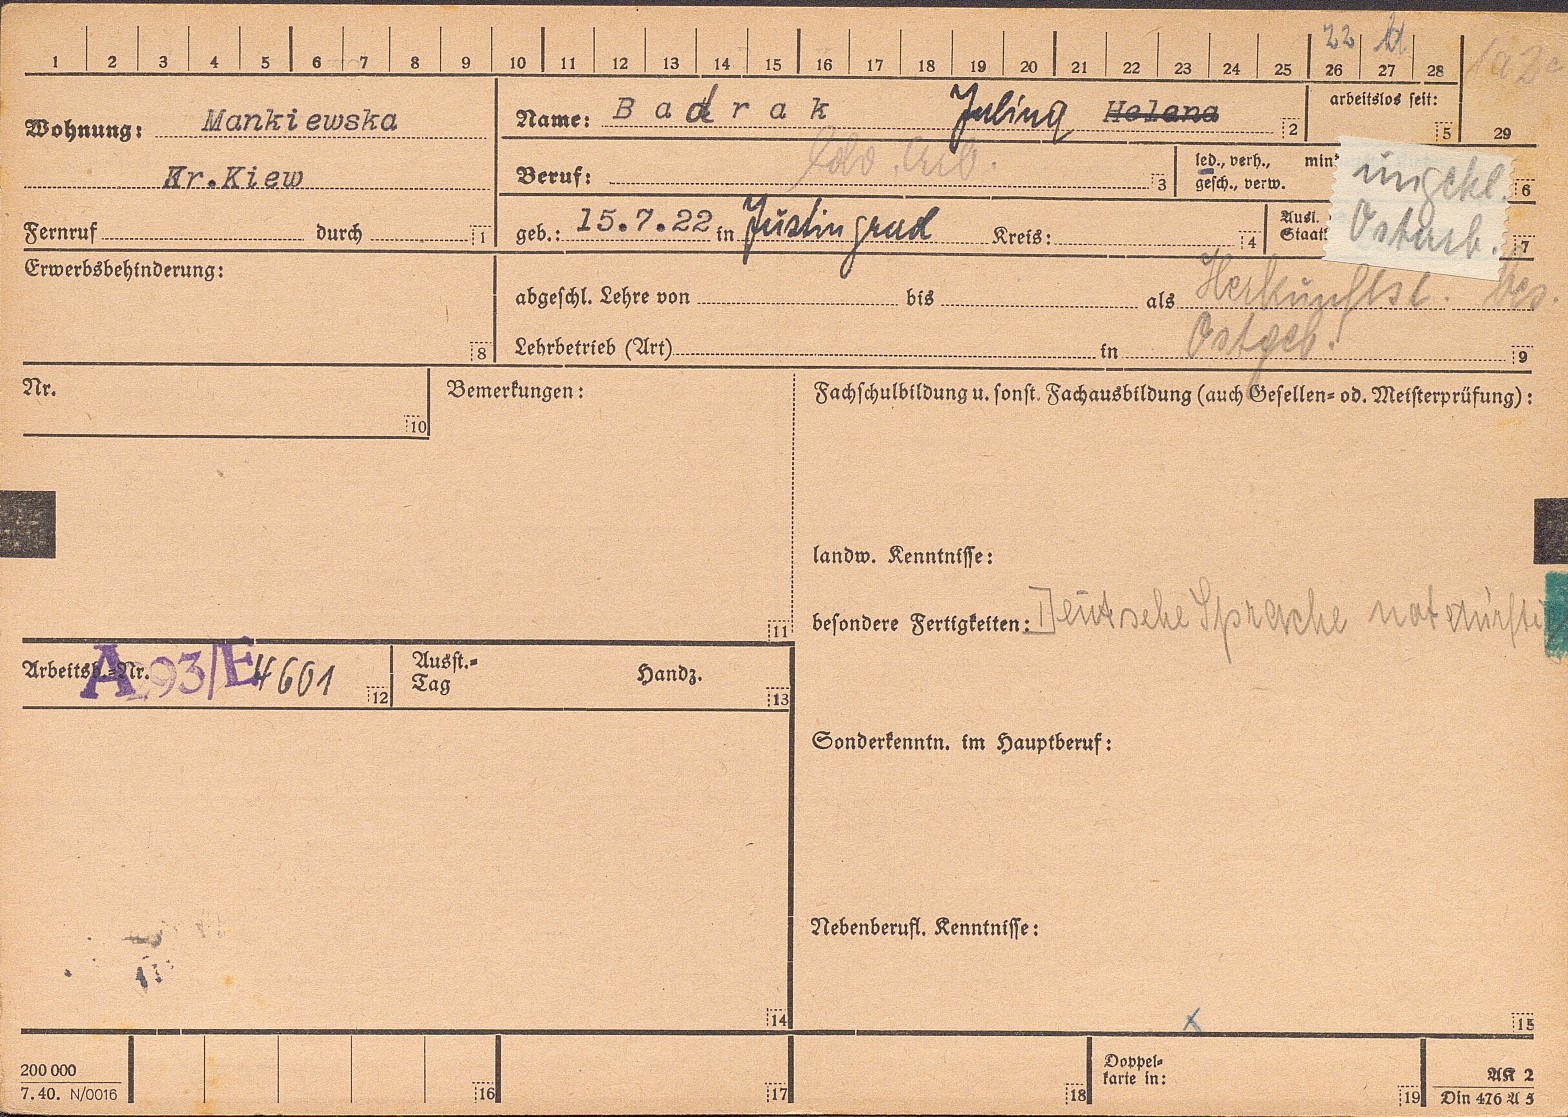 22
1 2 3 4 5 6 7 8 9 10 11 12 13 14 15 16 17 18 19 20 21 22 23 24 25 26 27 28
arbeitslos seit:
5 29
Wohnung: Mankiewska
Name: Badrak Helena 2
Kr.Kiew
Beruf: 3
led., verh.,
gesch., verw.
6
ungekl.
Ostarb.
Fernruf durch 1
geb.: 15.7.22 in Justingrad Kreis: 4
Ausl.
7
Erwerbsbehinderung:
8
abgeschl. Lehre von bis als Herkunftsl. bes.
Lehrbetrieb (Art) in Ostgeb. 9
Nr.
10
Bemerkungen:
11
Fachschulbildung u. sonst. Fachausbildung (auch Gesellen- od. Meisterprüfung):
landw. Kenntnisse:
besondere Fertigkeiten: Deutsche Sprache notdürfti
Arbeitsb.-Nr. A 293/E 4601 12
Ausst.-
Tag
Handz.
13
Sonderkenntn. im Hauptberuf:
Nebenberufl. Kenntnisse:
14
x
15
200 000
7.40. N/0016
16
17
18
Doppel-
karte in:
19
AK 2
Din 476 A 5